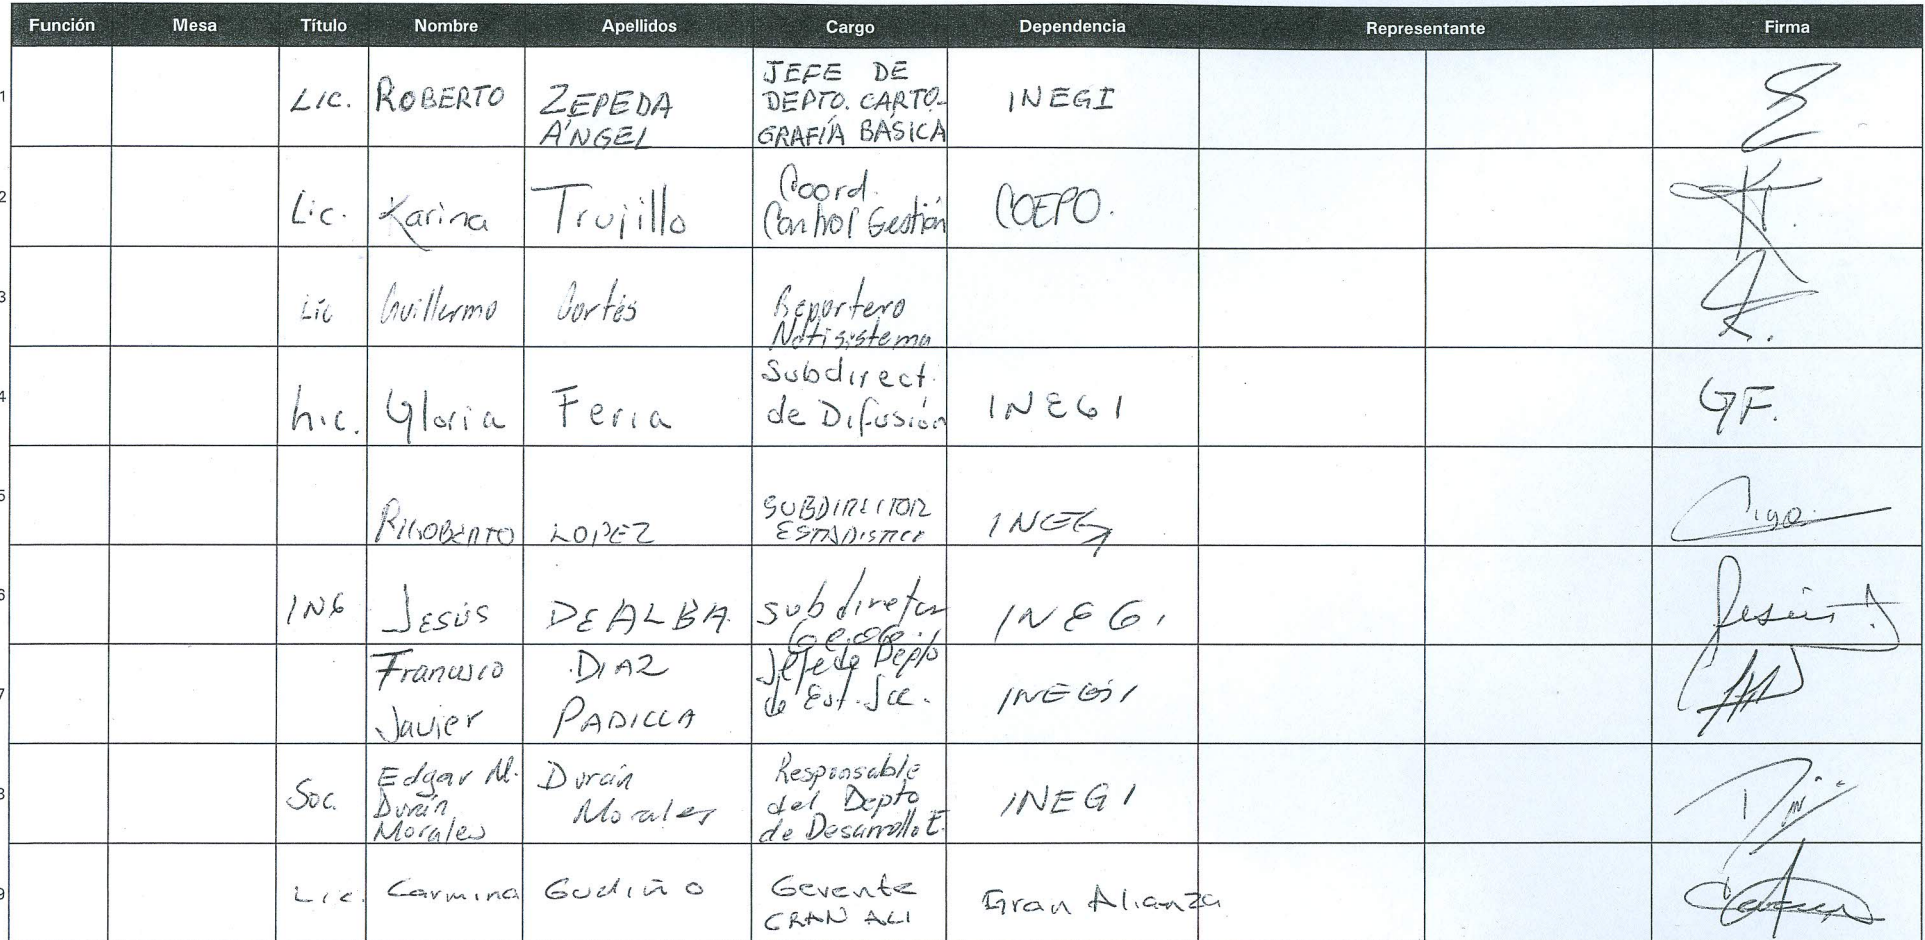 Función Mesa Título Nombre Apellidos Cargo Dependencia Representante Firma
1 Lic. ROBERTO ZEPEDA ÁNGEL JEFE DE DEPTO. CARTO- GRAFÍA BÁSICA INEGI
2 Lic. Karina Trujillo Coord. Control Gestión COEPO. KT.
3 Lic Guillermo Cortés Reportero Notisistema
4 Lic. Gloria Feria Subdirect. de Difusión INEGI GF.
5 RIGOBERTO LOPEZ SUBDIRECTOR INEGI
6 ING JESÚS DE ALBA subdirector Geog. INEGI Jesús
7 Francisco Javier DIAZ PADILLA Jefe de Depto de Est. INEGI
8 Soc. Edgar M. Durán Morales Durán Morales Responsable del Depto de Desarrollo E. INEGI
9 Lic. Carmina Gudiño Gerente GRAN ALI Gran Alianza